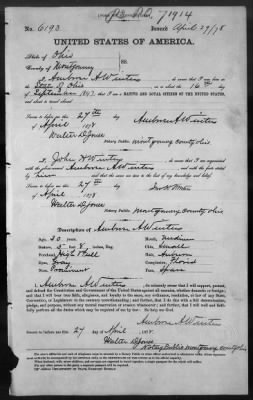 No. 6193 Issued April 29/78
UNITED STATES OF AMERICA.
State of Ohio
County of Montgomery } ss.
I, Auburn A Winters do swear that I was born in the
State of Ohio on or about the 16th day
of September 1847; that I am a NATIVE AND LOYAL CITIZEN OF THE UNITED STATES,
and about to travel abroad.
Sworn to before me this 27th day
of April 1878
Walter D Jones
Notary Public Montgomery County Ohio
Auburn A Winters
I, John H Winters do swear that I am acquainted
with the above named Auburn A Winters and with the facts stated
by him and that the same are true to the best of my knowledge and belief.
Sworn to before me this 27th day
of April 1878
Walter D Jones
Notary Public Montgomery County Ohio
Description of Auburn A Winters
Age, 30 years. Mouth, Medium
Stature, 5 feet 8 inches, Eng. Chin, Small
Forehead, High & Full Hair, Auburn
Eyes, Gray Complexion, Florid
Nose, Prominent Face, Spare
I, Auburn A Winters do solemnly swear that I will support, protect
and defend the Constitution and Government of the United States against all enemies, whether domestic or foreign;
and that I will bear true faith, allegiance, and loyalty to the same, any ordinance, resolution, or law of any State,
Convention, or Legislature to the contrary notwithstanding; and further, that I do this with a full determination,
pledge, and purpose, without any mental reservation or evasion whatsoever; and further, that I will well and faith-
fully perform all the duties which may be required of me by law: So help me God.
Auburn A Winters
Sworn to before me this 27 day of April 1878
Walter D Jones
Notary Public Montgomery County Ohio